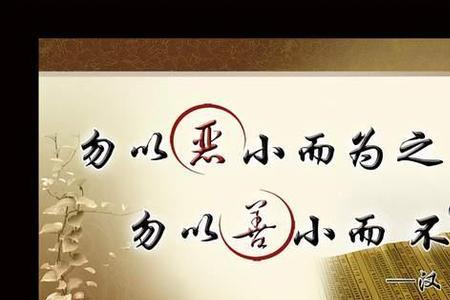 勿以恶小而为之
勿以善小而不
—汉